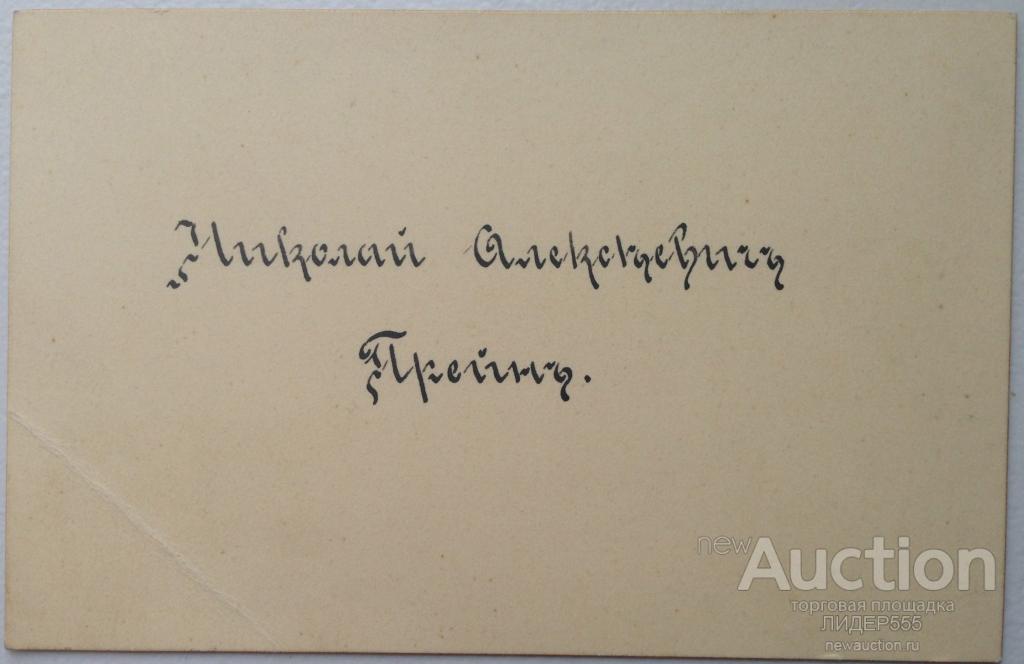 Николай Алексѣевичъ
Прейнъ.
new Auction
торговая площадка
ЛИДЕР555
newauction.ru